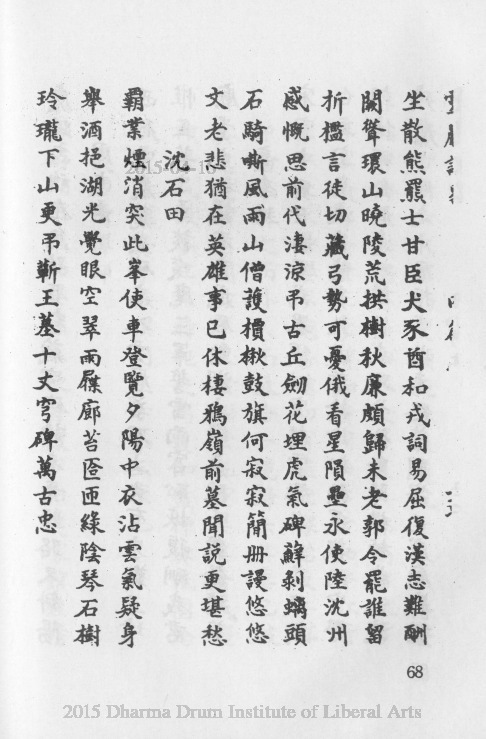 坐散熊羆士甘臣犬豕酋和戎詞易屈復漢志難酬
闕聳環山曉陵荒拱樹秋廉頗歸未老郭令罷誰留
折檻言徒切藏弓勢可憂俄看星隕壘永使陸沈州
感慨思前代淒涼弔古丘劒花埋虎氣碑蘚剝螭頭
石騎嘶風雨山僧護檟楸鼓旗何寂寂簡册謾悠悠
文老悲猶在英雄事已休棲鴉嶺前墓聞説更堪愁
沈石田
霸業煙消突此峯使車登覽夕陽中衣沾雲氣疑身
舉酒挹湖光覺眼空翠雨屧廊苔匼匝綠陰琴石樹
玲瓏下山更弔蘄王墓十丈穹碑萬古忠
68
2015 Dharma Drum Institute of Liberal Arts